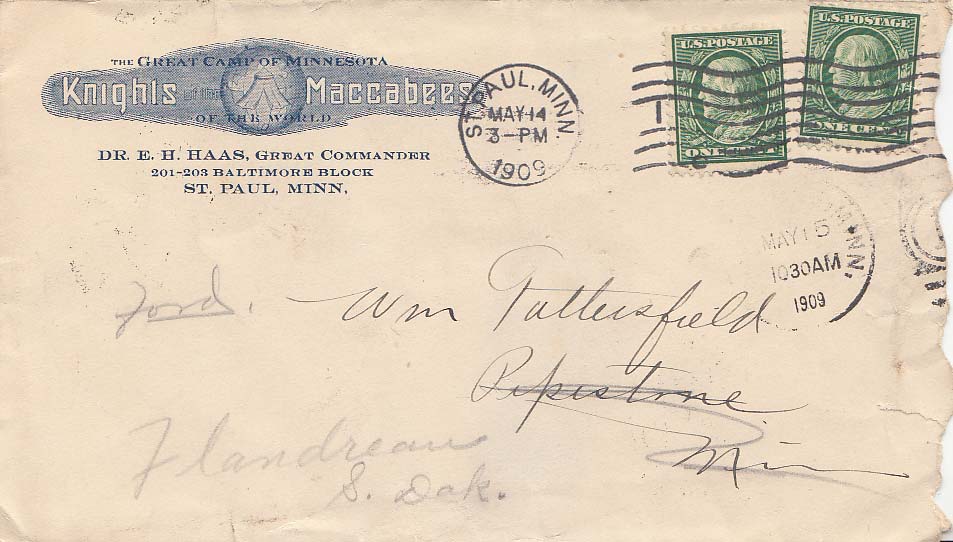 THE GREAT CAMP OF MINNESOTA
Knights of the Maccabees
OF THE WORLD
DR. E. H. HAAS, GREAT COMMANDER
201-203 BALTIMORE BLOCK
ST. PAUL, MINN.
ST. PAUL, MINN.
MAY 14
3-PM
1909
1
U.S. POSTAGE
ONE CENT
U.S. POSTAGE
ONE CENT
MINN.
MAY 15
1030AM
1909
Ford.
Wm Tattersfield
Pipestone
Minn
Flandreau
S. Dak.